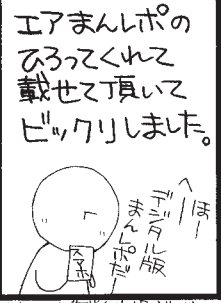 エアまんレポの
ひろってくれて
載せて頂いて
ビックリしました。
へー
ほー
デジタル版
まんレポだ